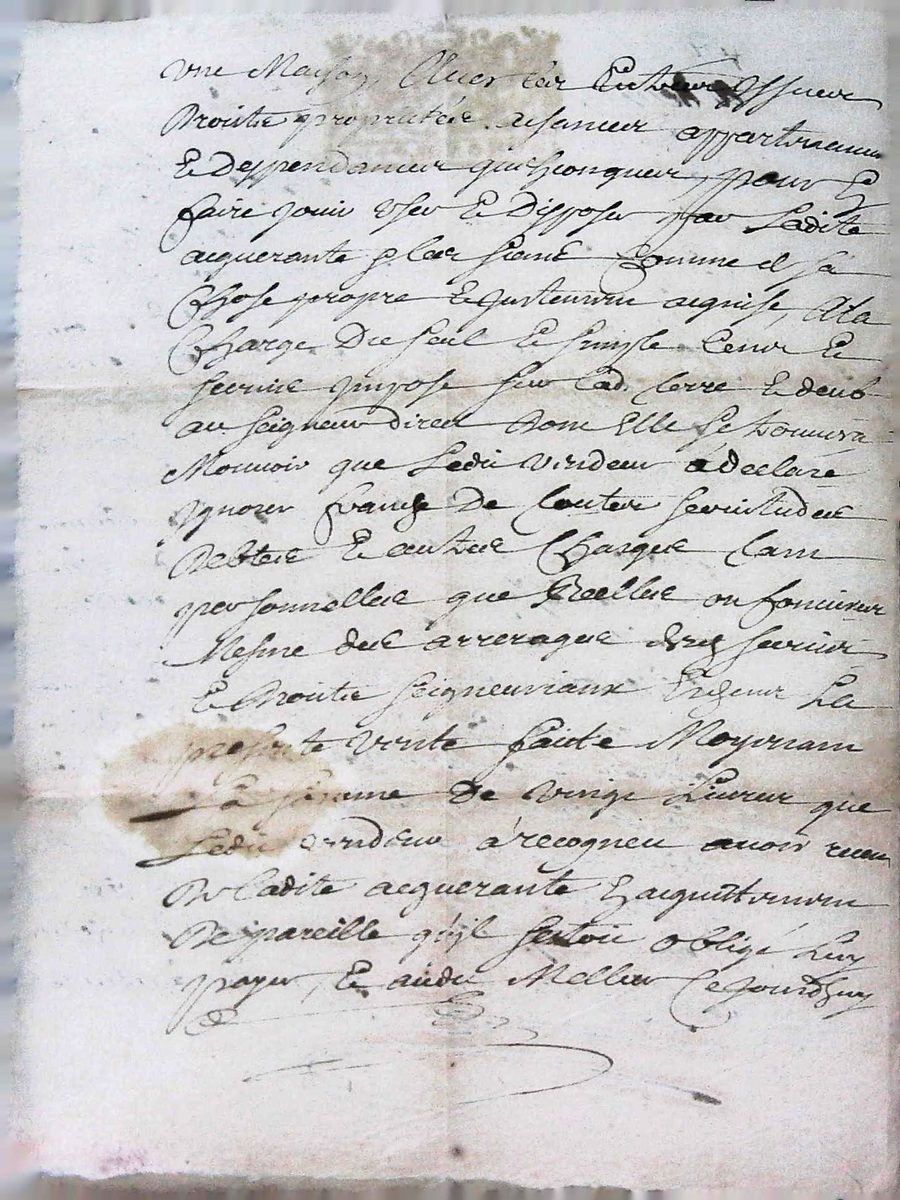 une Maison, Avec ses Entrées Issues
Droits proprietés aisances appartenances
Et deppendances quelsconques, pour En
faire jouir user Et Disposer par Ladite
acquerante Et les siens Comme de sa
Chose propre Et justement acquise, A la
Charge Du seul Et simple Cens Et
servis impose sur lad. Terre Et deub
au seigneur direct Dont Elle se trouvera
Mouvoir que Ledit vendeur a declaré
ignorer franche De toutes servitudes
Debtes Et autres Charges tant
personnelles que Reelles ou foncieres
Mesme des arrerages des servis
Et droits seigneuriaux La
presente vente faite Moyenant
La somme De vingt Livres que
Ledit vendeur à recogneu avoir receu
De Ladite acquerante Et acquittement
De pareille qu'il sestoit obligé Luy
payer, Et audit Mellier Cejourdhuy